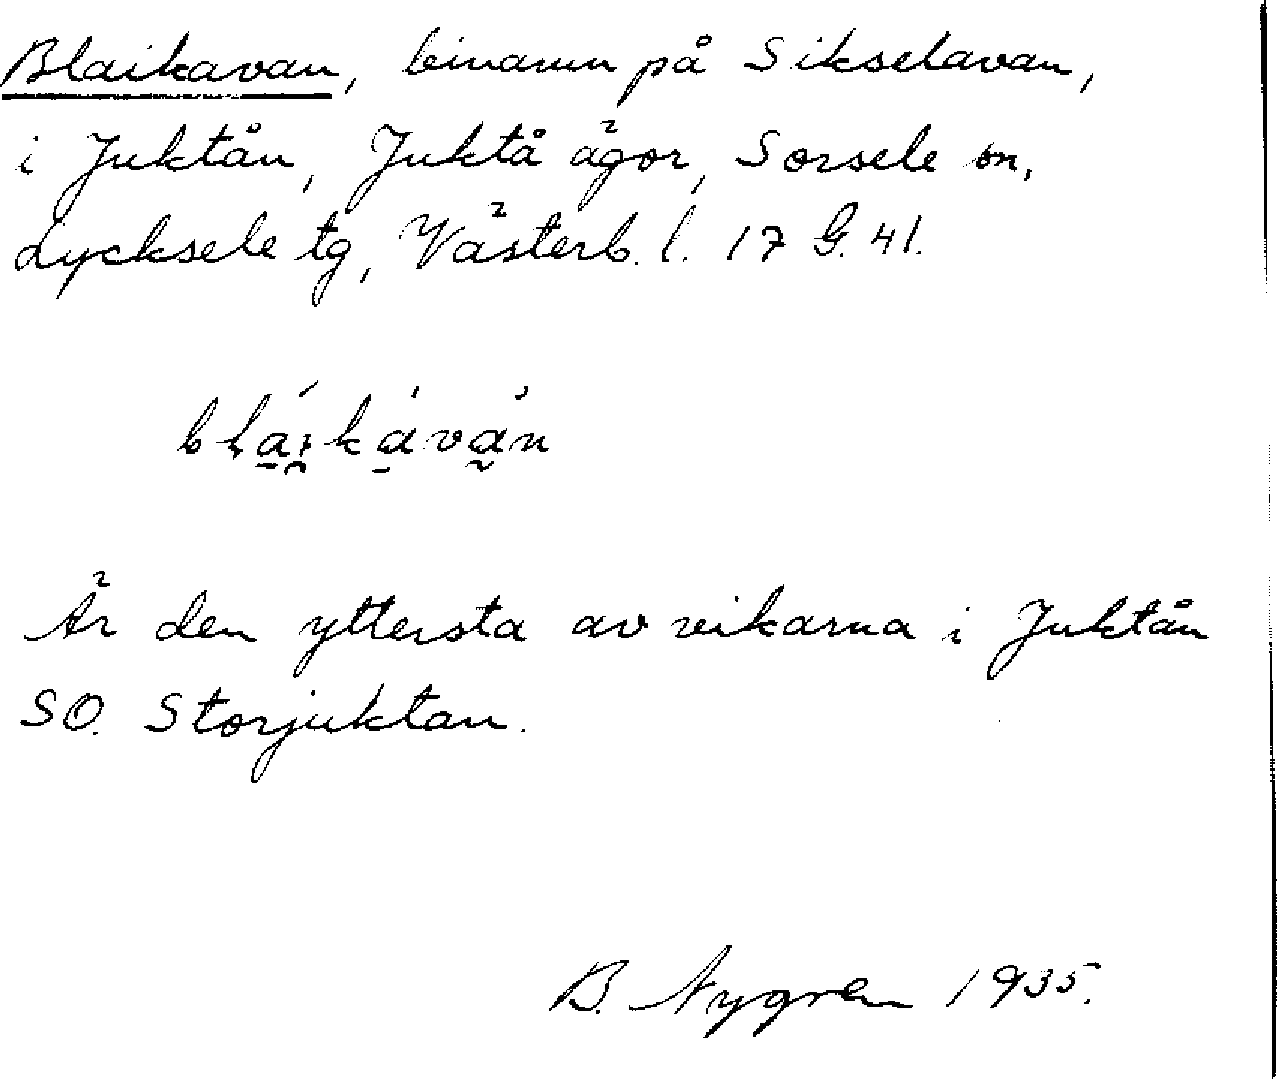 Blaikavan, binamn på Sikselavan,
i Juktån, Juktå ägor, Sorsele sn,
Lycksele tg, Västerb. l. 17 G. 41.
bláikávàn
Är den yttersta av vikarna i Juktån
SO. Storjuktan.
B. Nygren 1935.